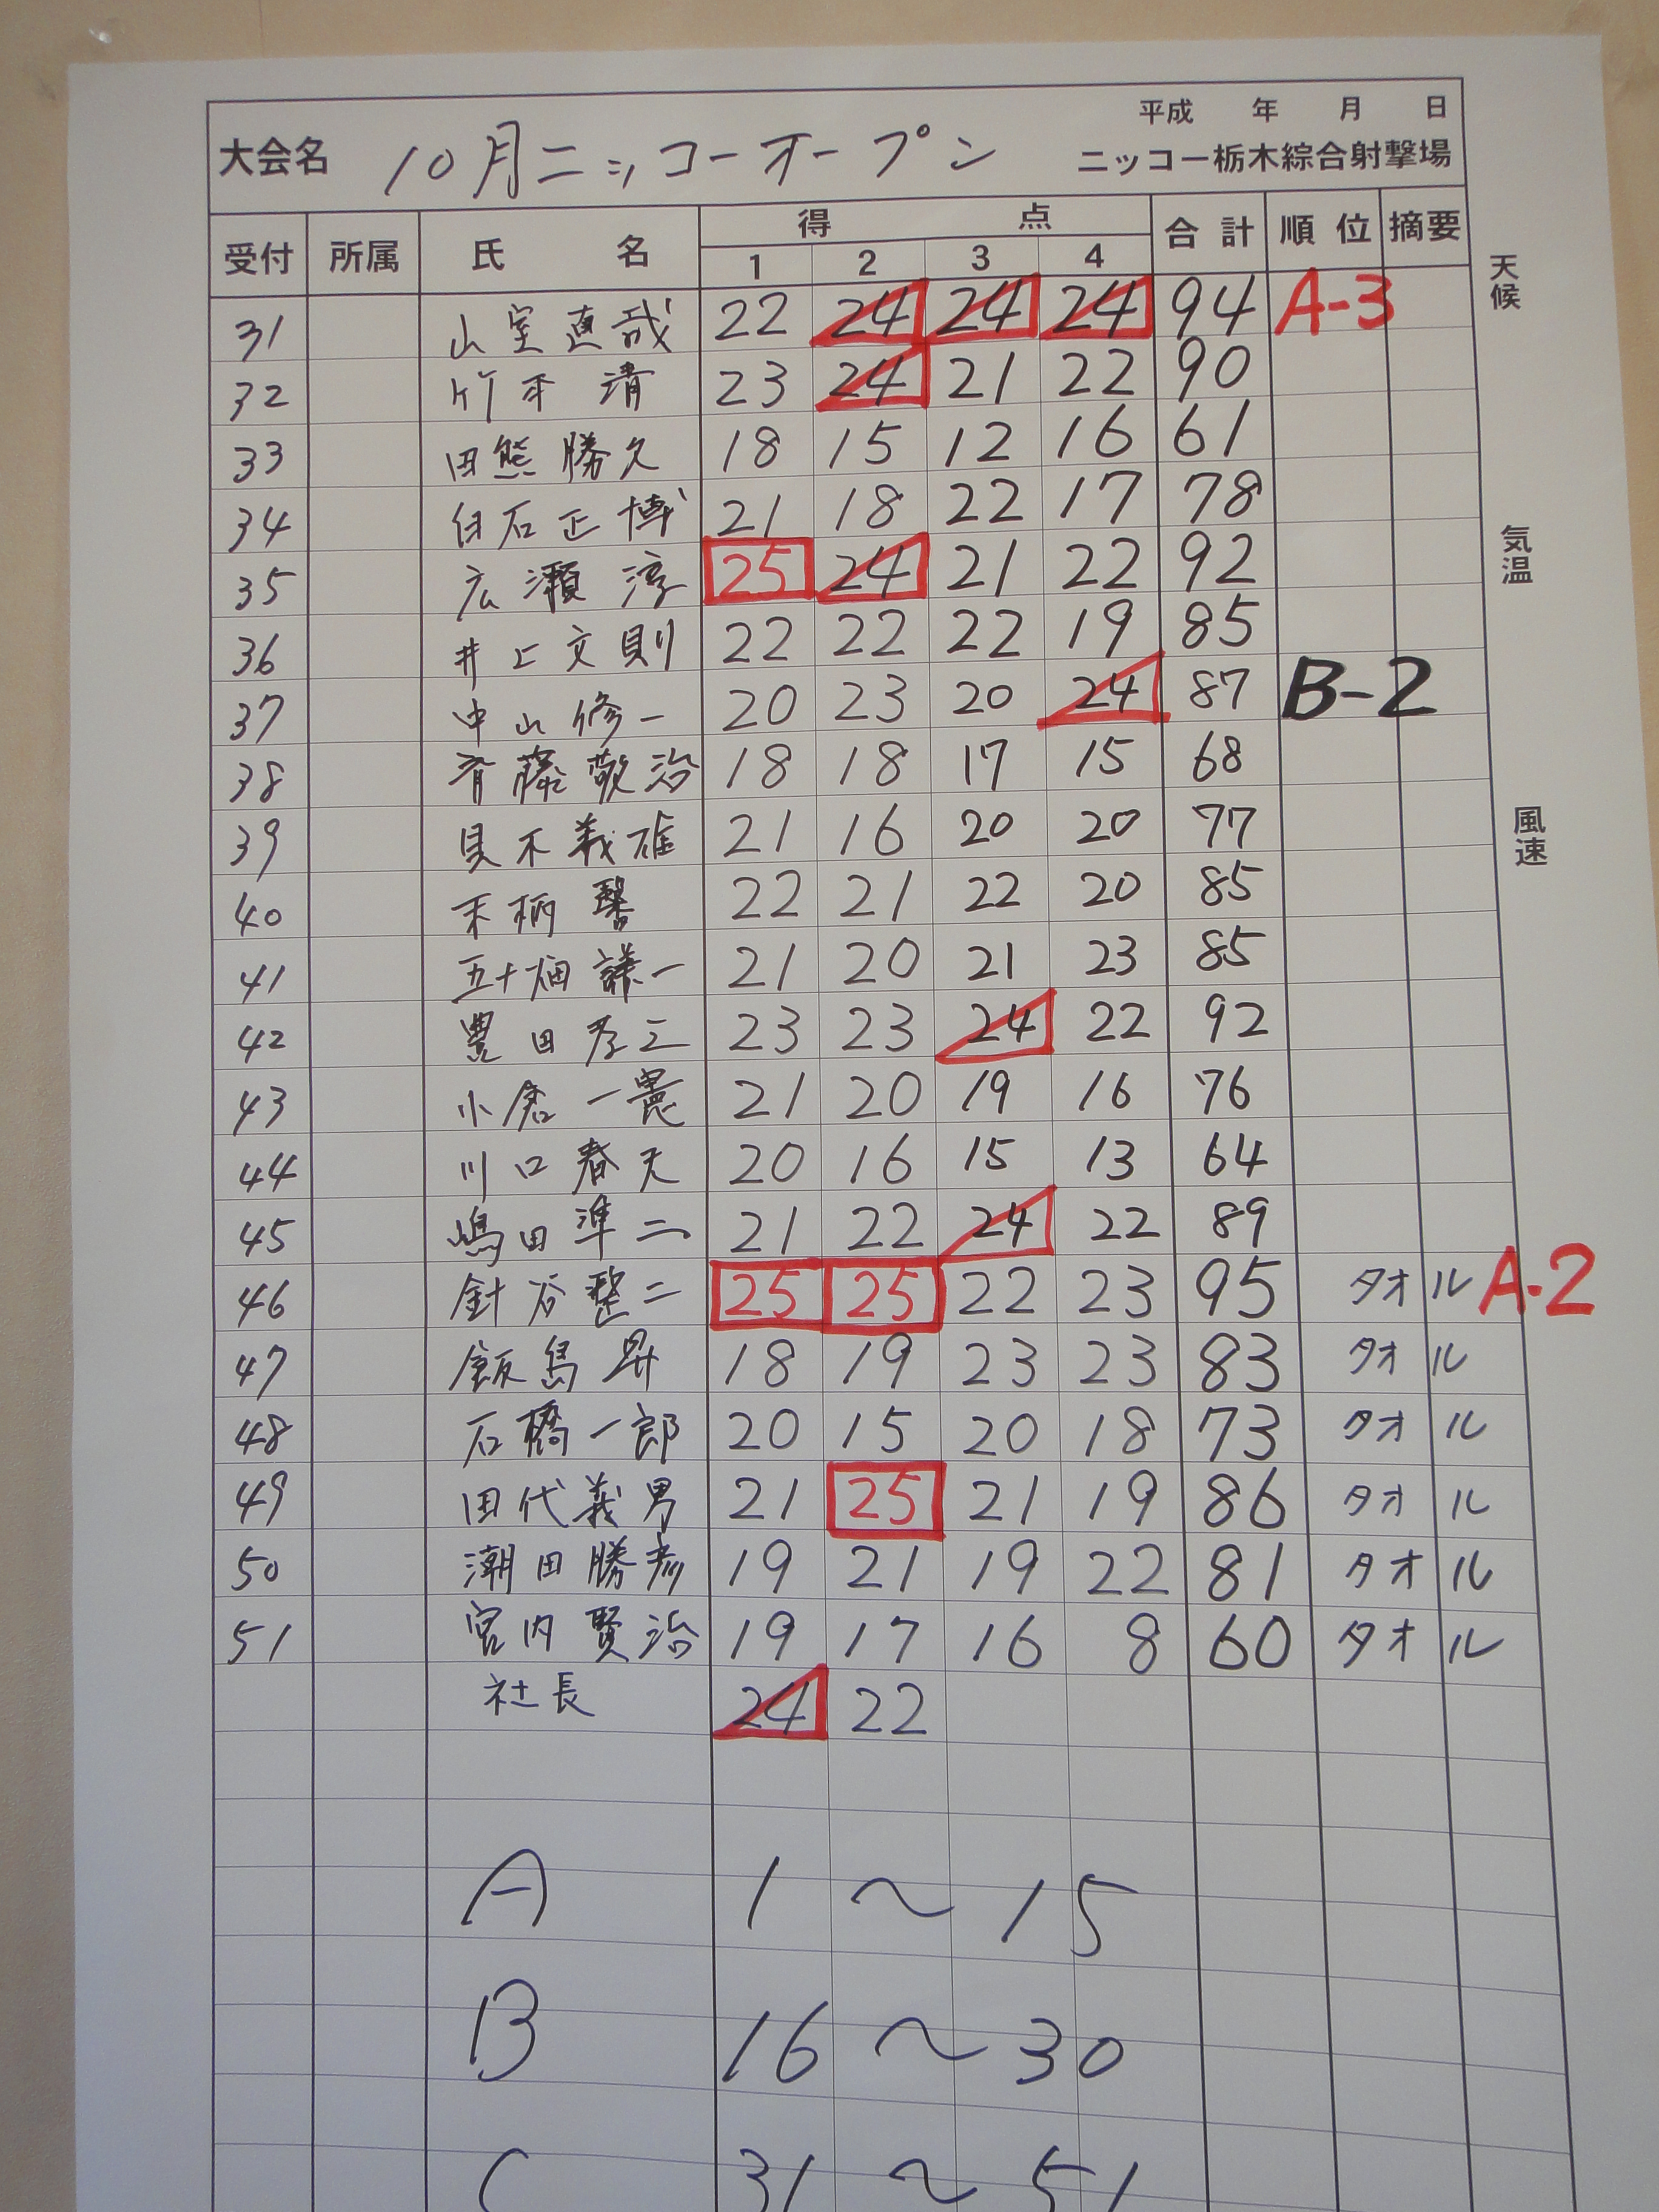 平成 年 月 日
大会名 10月ニッコーオープン ニッコー栃木綜合射撃場
受付 所属 氏名 得点 合計 順位 摘要
1 2 3 4
天候
31 山室直哉 22 24 24 24 94 A-3
32 竹平清 23 24 21 22 90
33 田熊勝久 18 15 12 16 61
34 白石正博 21 18 22 17 78
気温
35 広瀬淳 25 24 21 22 92
36 井上文則 22 22 22 19 85
37 中山修一 20 23 20 24 87 B-2
38 斉藤敬治 18 18 17 15 68
風速
39 21 16 20 20 77
40 22 21 22 20 85
41 五十畑謙一 21 20 21 23 85
42 豊田孝三 23 23 24 22 92
43 小倉一憲 21 20 19 16 76
44 川口春夫 20 16 15 13 64
45 嶋田準二 21 22 24 22 89
46 針谷整二 25 25 22 23 95 タオル A-2
47 飯島昇 18 19 23 23 83 タオル
48 石橋一郎 20 15 20 18 73 タオル
49 田代義男 21 25 21 19 86 タオル
50 潮田勝彦 19 21 19 22 81 タオル
51 宮内賢治 19 17 16 8 60 タオル
社長 24 22
A 1~15
B 16~30
C 31~51